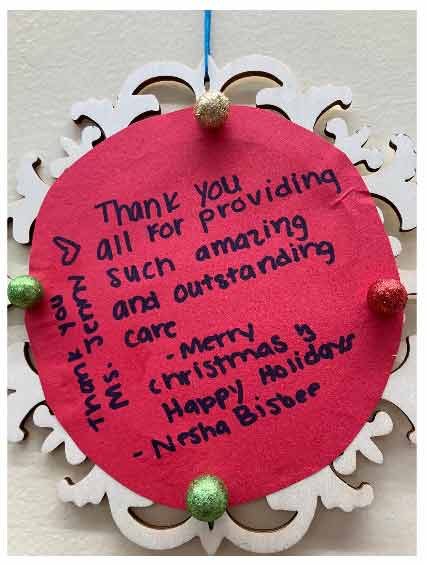 Thank you
all for providing
such amazing
and outstanding
care
- Merry
christmas y
Happy Holidays
- Nesha Bisbee
Thank you
Ms. Jenny ♡